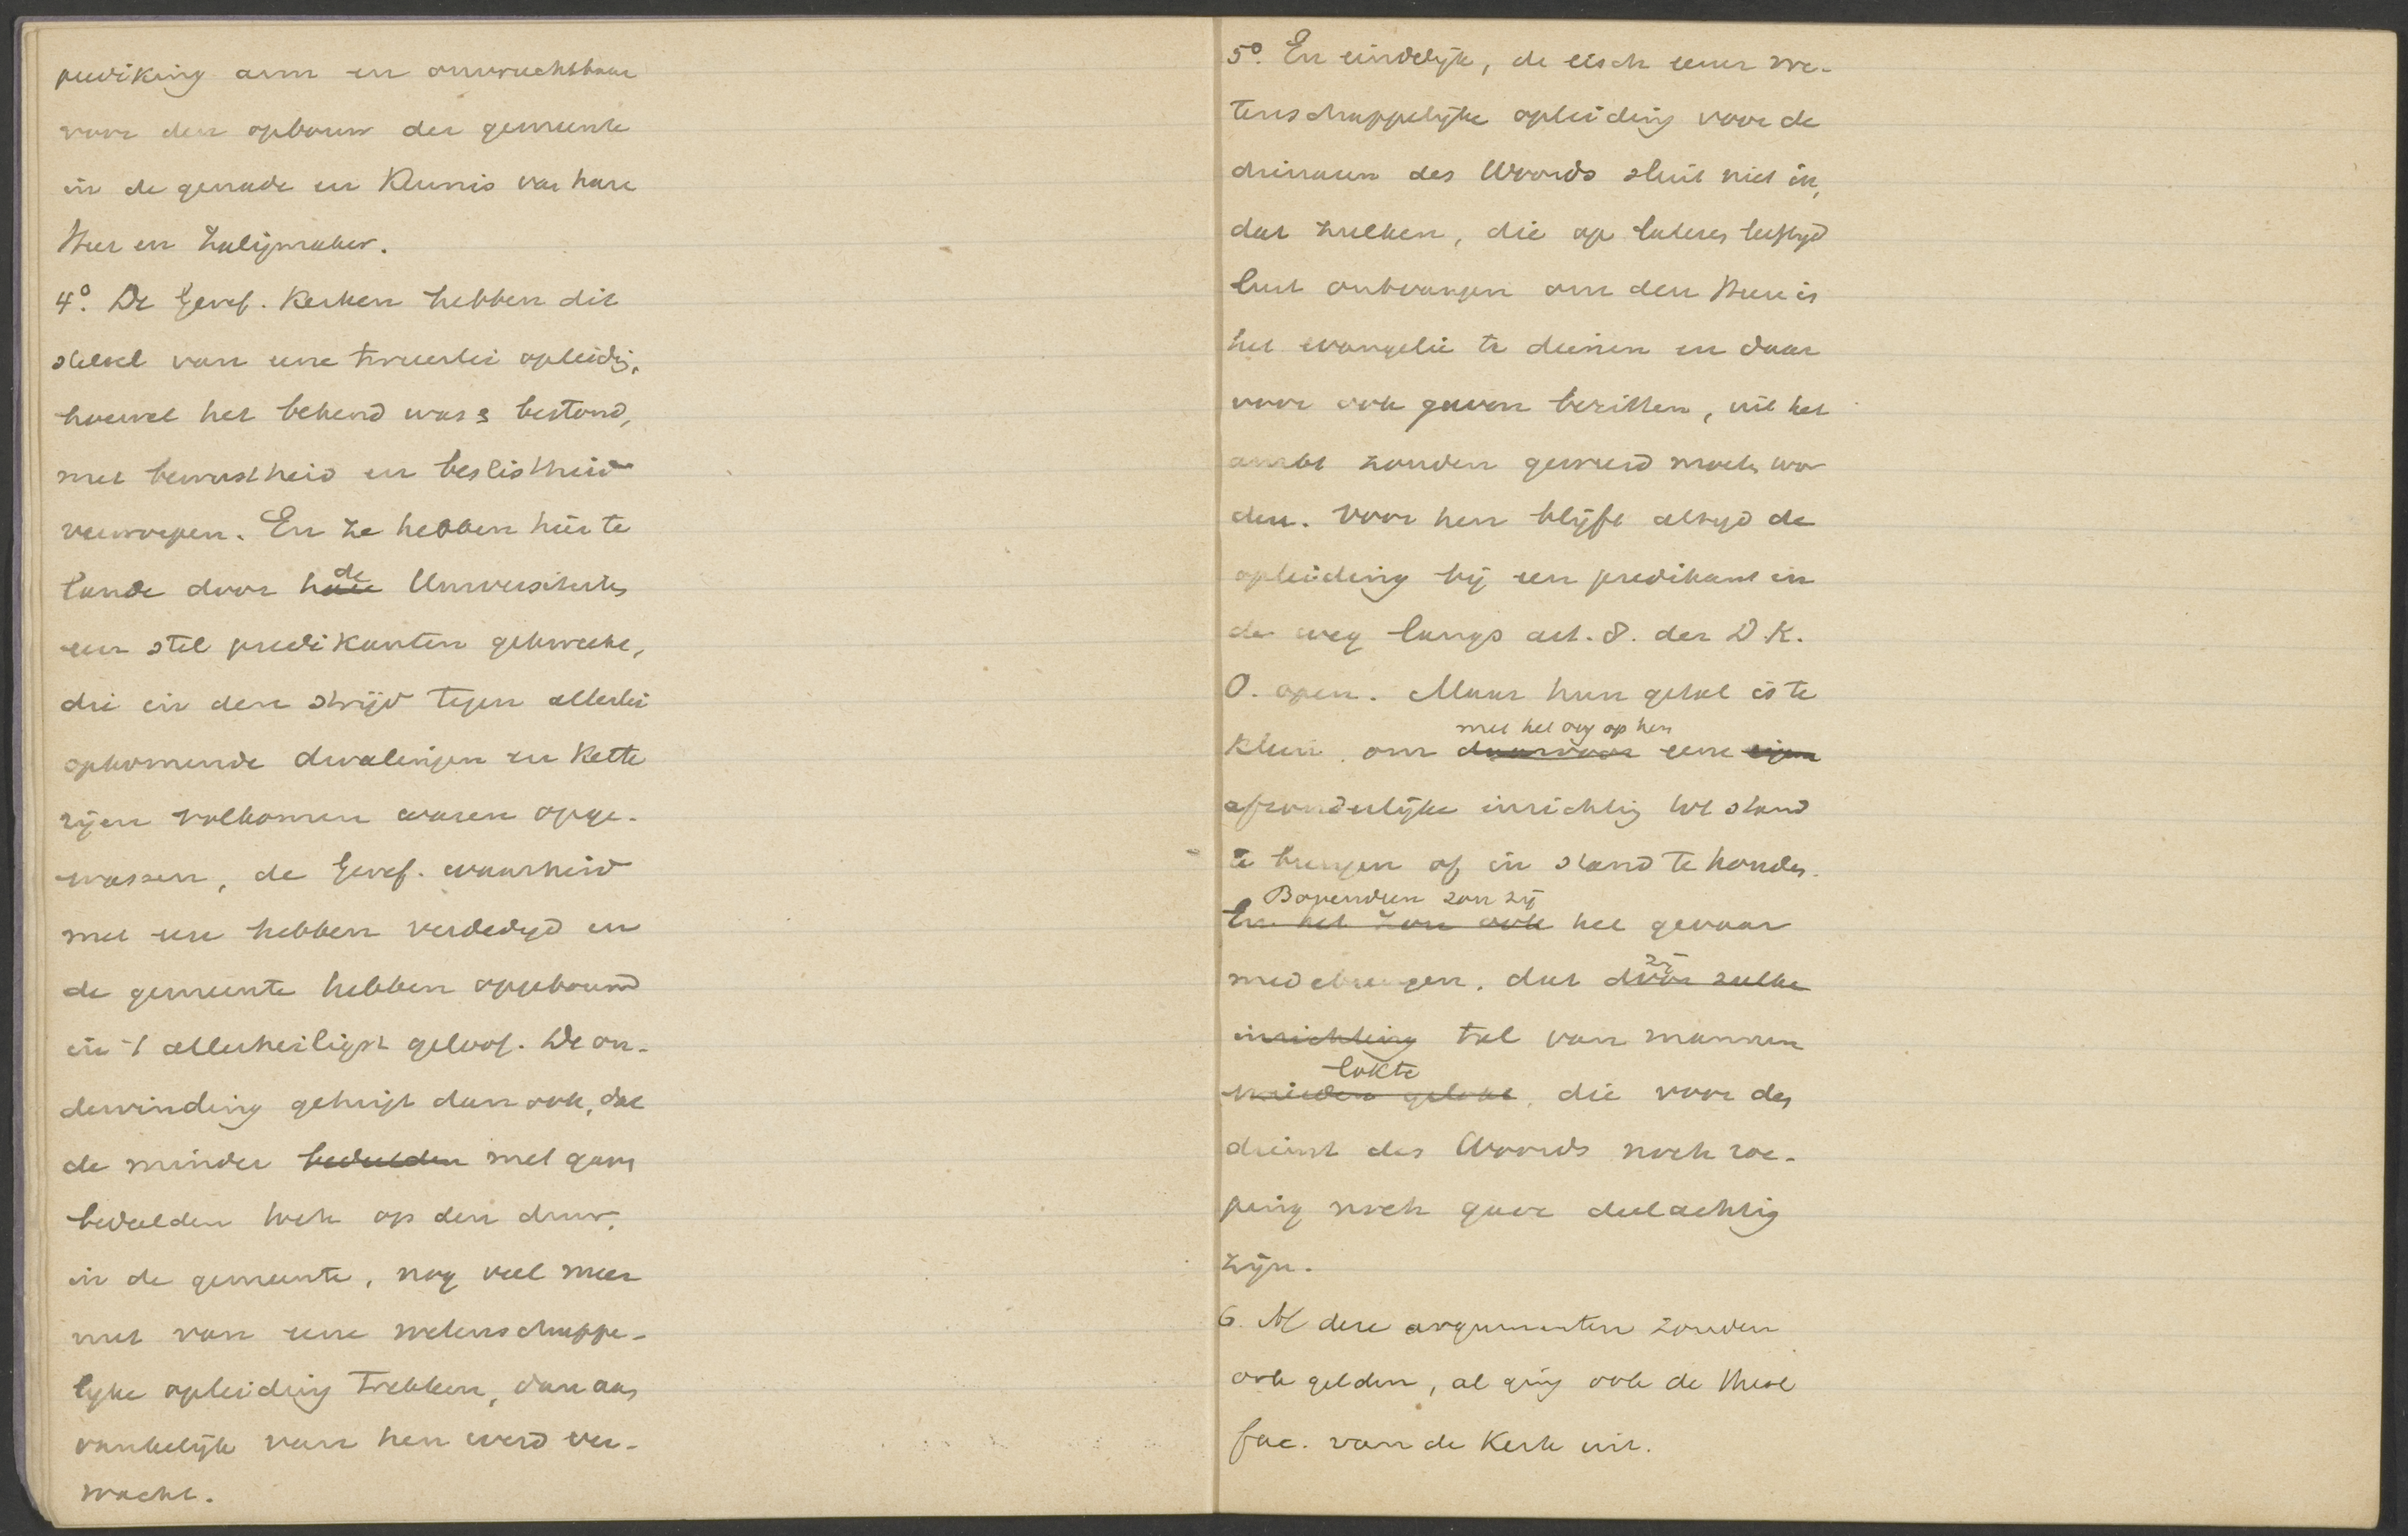 prediking arm en onvruchtbaar
voor den opbouw der gemeente
in de genade en Kennis van haren
Heer en Zaligmaker.
4°. De Geref. Kerken hebben dit
stelsel van eene tweeerlei opleiding,
hoewel het bekend was & bestond,
met bewustheid en beslistheid
verworpen. En ze hebben hier te
lande door hare de Universiteiten
een stel predikanten gekweekt,
die in den strijd tegen allerlei
opkomende dwalingen en Kette
rijen volkomen waren opge-
wassen, de Geref. waarheid
met eere hebben verdedigd en
de gemeente hebben opgebouwd
in 't allerheiligst geloof. De on-
dervinding getuigt dan ook, dat
de minder bedeelden met gaven
bedeelden toch op den duur,
in de gemeente, nog veel meer
nut van eene wetenschappe-
lijke opleiding trekken, dan aan
vankelijk van hen werd ver-
wacht.
5°. En eindelijk, de eisch eener we-
tenschappelijke opleiding voor de
dienaren des Woords sluit niet in,
dat zulken, die op lateren leeftijd
lust ontvangen om den Heere in
het evangelie te dienen en daar
voor ook gaven bezitten, uit het
ambt zouden geweerd moeten wor
den. Voor hen blijft altijd de
opleiding bij een predikant en
de weg langs art. 8. der D.K.
O. open. Maar hun getal is te
klein om daarvoor met het oog op hen eene eigen
afzonderlijke inrichting tot stand
te brengen of in stand te houden.
En het zou ook Bovendien zou zij het gevaar
medebrengen, dat door zulke zij
inrichting tal van mannen
werden gelokt lokte, die voor den
dienst des Woords noch roe-
ping noch gave deelachtig
zijn.
6. Al deze argumenten zouden
ook gelden, al ging ook de theol
fac. van de Kerk uit.